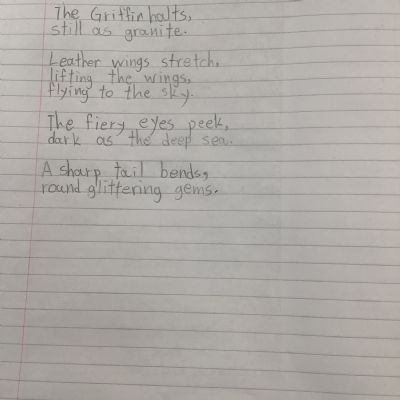 The Griffin halts,
still as granite.
Leather wings stretch,
lifting the wings,
flying to the sky.
The fiery eyes peek,
dark as the deep sea.
A sharp tail bends,
round glittering gems.